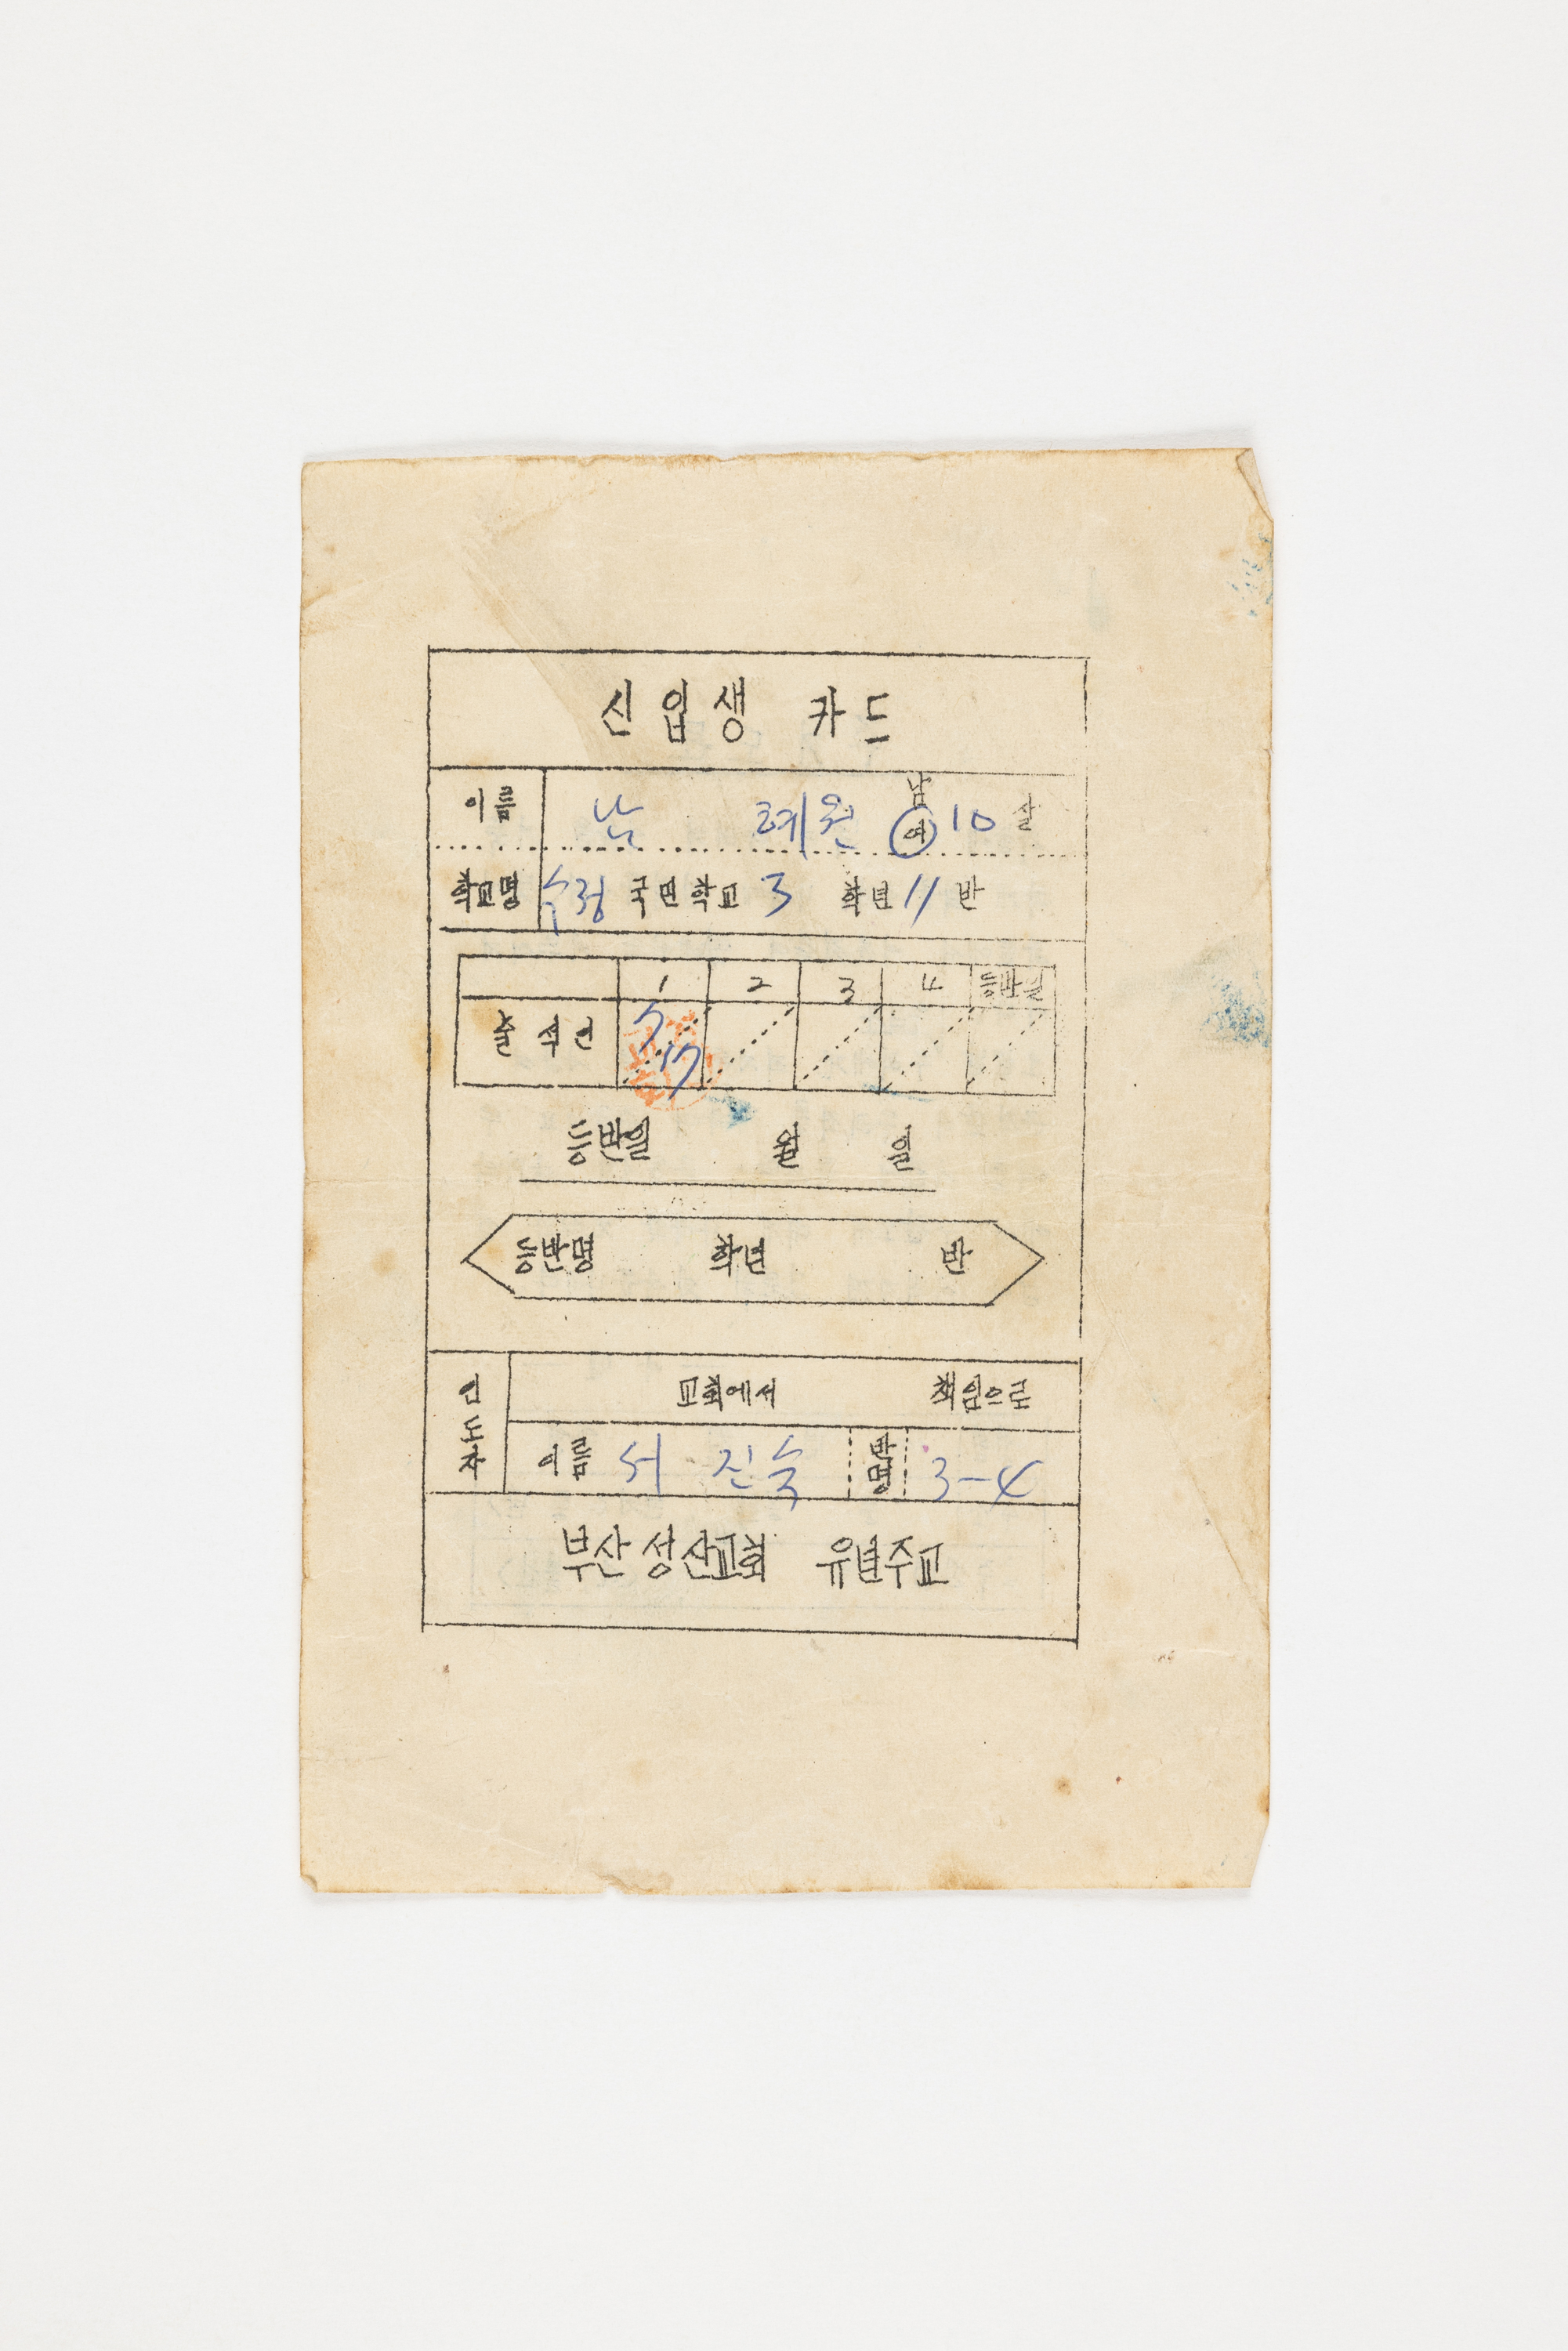 신입생 카드
이름 남 례원 남 여 10 살
학교명 수정 국민학교 3 학년 11 반
1 2 3 4 등반일
출석인 5 17
등반일 월 일
등반명 학년 반
인도자 교회에서 책임으로
이름 서 진숙 반명 3-4
부산성산교회 유년주교